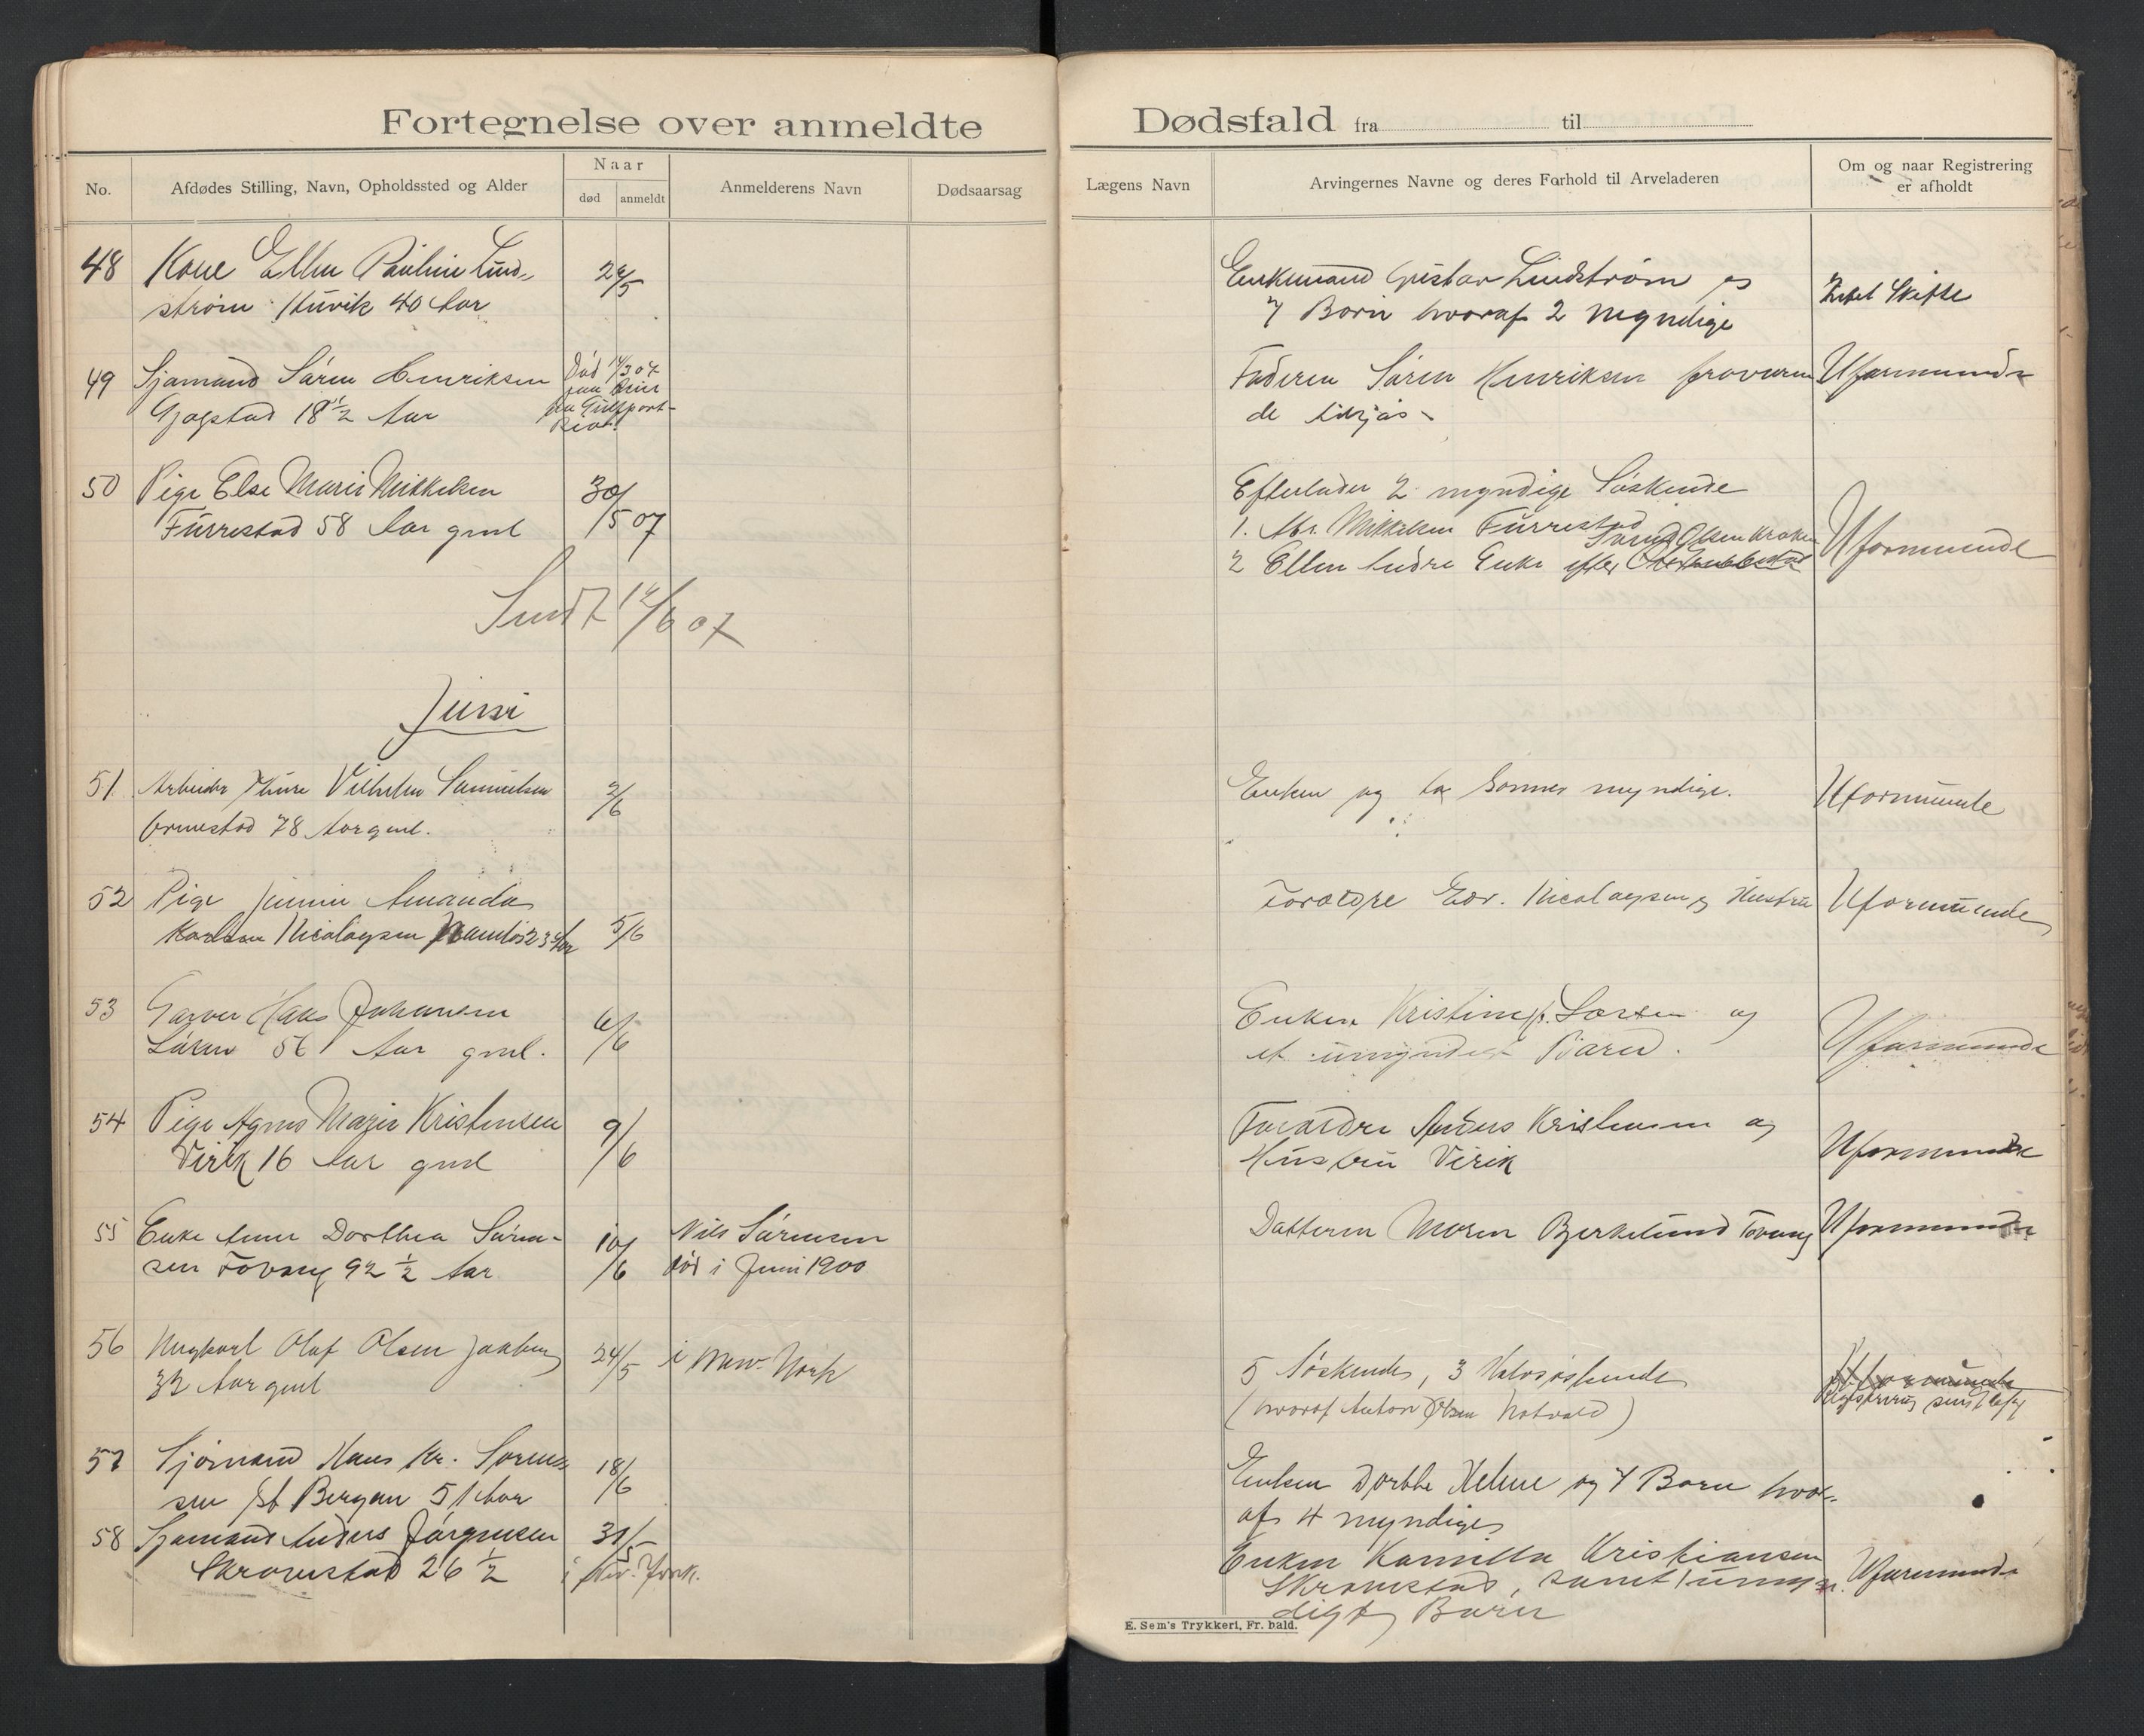 Fortegnelse over anmeldte Dødsfald fra til
No. Afdødes Stilling, Navn, Opholdssted og Alder Naar død anmeldt Anmelderens Navn Dødsaarsag Lægens Navn Arvingernes Navne og deres Forhold til Arveladeren Om og naar Registrering er afholdt
48 Kone Ellen Pauline Lind-
strøm 40 Aar
Enkemand Gustav Lindstrøm og
7 Børn hvoraf 2 myndige
49 Sjømand Søren Henriksen
Gjogstad 18 1/2 Aar
Død
Faderen Søren Henriksen fraværen
de tilsjøs
Uformuende
50 Pige Else Marie Mikkelsen
Furrestad 58 Aar gml
30/5 07
Efterlader 2 myndige Søskende
1. Abr. Mikkelsen Furrestad
2 Ellen Andrea Enke efter
Uformuende
Sendt 14/6 07
Juni
51 Arbeider Vilhelm Samuelsen
Ormestad 78 Aar gml.
2/6
Enken og to Sønner myndige.
Uformuende
52 Pige Jenni Amanda
Karlsen Nicolaysen 23 Aar
5/6
Forældre Edv. Nicolaysen og Hustru
Uformuende
53 Garver Hans Johansen
Larsen 56 Aar gml.
6/6
Enken Kristine Larsen og
et umyndigt Barn.
Uformuende
54 Pige Agnes Marie Kristensen
Virik 16 Aar gml
9/6
Forældre Anders Kristensen og
Hustru Virik
Uformuende
55 Enke Anne Dorthea Søren-
sen Tovang 92 1/2 Aar
10/6
Nils Sørensen
død i Juni 1900
Datteren Maren Bjerkelund Tovang
Uformuende
56 Ungkarl Olaf Olsen
32 Aar gml
24/5
i New-York
5 Søskende, 3 Halvsøskende
(hvoraf Anton Olsen)
Uformuende
57 Sjømand Hans Kr. Søren-
sen Bergan 51 Aar
18/6
Enken Dorthe Helene og 7 Børn hvor-
af 4 myndige
58 Sjømand Anders Jørgensen
Skravestad 26 1/2
31/5
i New-York.
Enken Kamilla Kristiansen
Skravestad, samt 1 umyn
digt Barn
Uformuende
E. Sem's Trykkeri, Fr. hald.